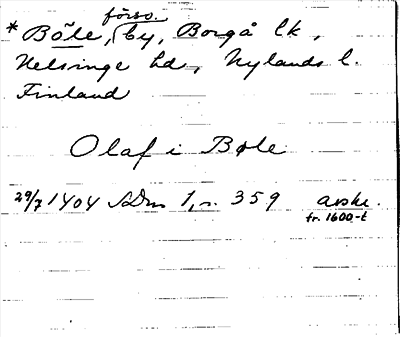 * Böle, försv. by, Borgå lk,
Helsinge hd, Nylands l.
Finland
Olaf i Bøle
29/7 1404 SDns 1, s. 359 avskr.
fr. 1600-t